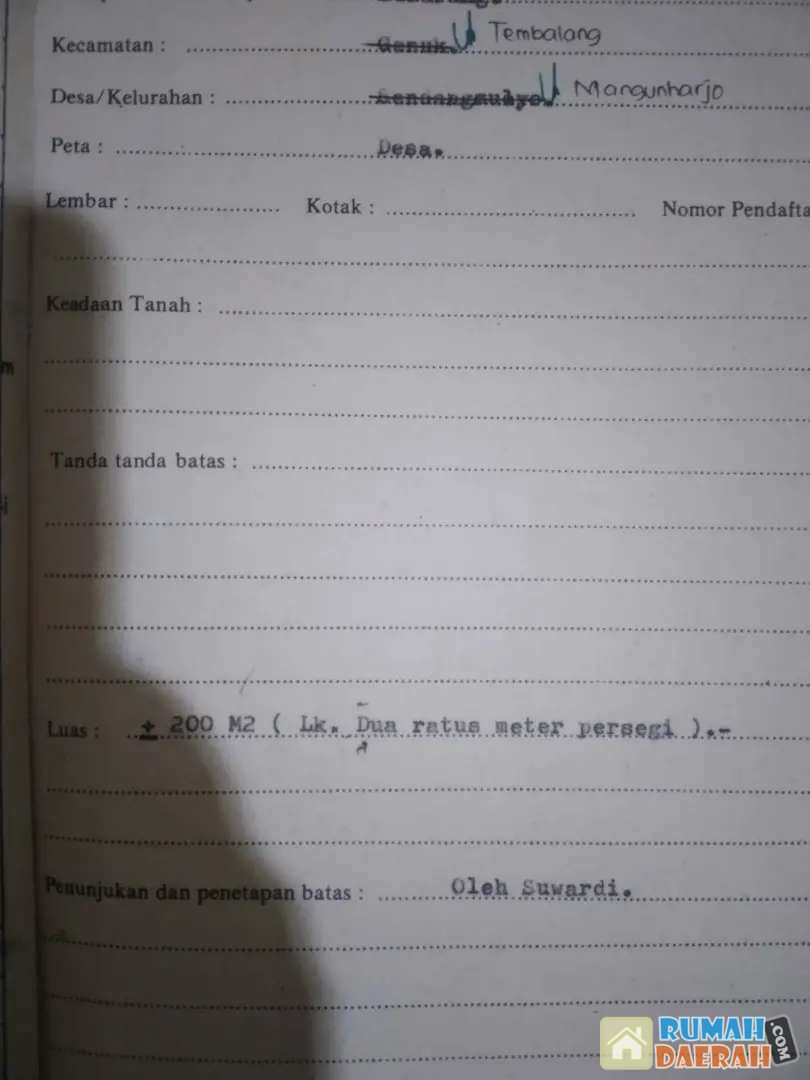 Kecamatan : Genuk. Tembalang
Desa/Kelurahan : Mangunharjo
Peta : Desa.
Lembar : Kotak : Nomor Pendafta
Keadaan Tanah :
Tanda tanda batas :
Luas : ± 200 M2 ( Lk. Dua ratus meter persegi ).-
Penunjukan dan penetapan batas : Oleh Suwardi.
RUMAH
DAERAH
.COM